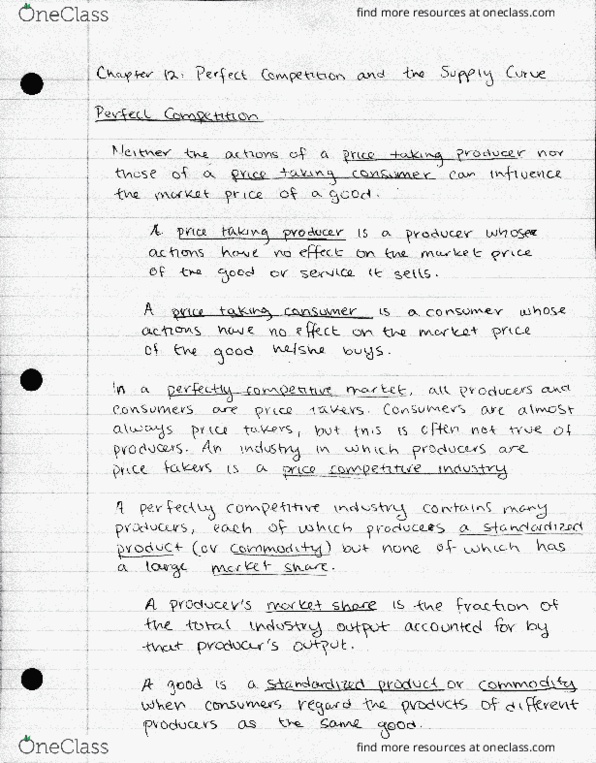 OneClass
find more resources at oneclass.com
Chapter 12: Perfect Competition and the Supply Curve
Perfect Competition
Neither the actions of a price taking producer nor
those of a price taking consumer can influence
the market price of a good.
A price taking producer is a producer whose
actions have no effect on the market price
of the good or service it sells.
A price taking consumer is a consumer whose
actions have no effect on the market price
of the good he/she buys.
In a perfectly competitive market, all producers and
consumers are price takers. Consumers are almost
always price takers, but this is often not true of
producers. An industry in which producers are
price takers is a price competitive industry
A perfectly competitive industry contains many
producers, each of which produces a standardized
product (or commodity) but none of which has
a large market share.
A producer's market share is the fraction of
the total industry output accounted for by
that producer's output.
A good is a standardized product or commodity
when consumers regard the products of different
producers as the same good.
OneClass
find more resources at oneclass.com